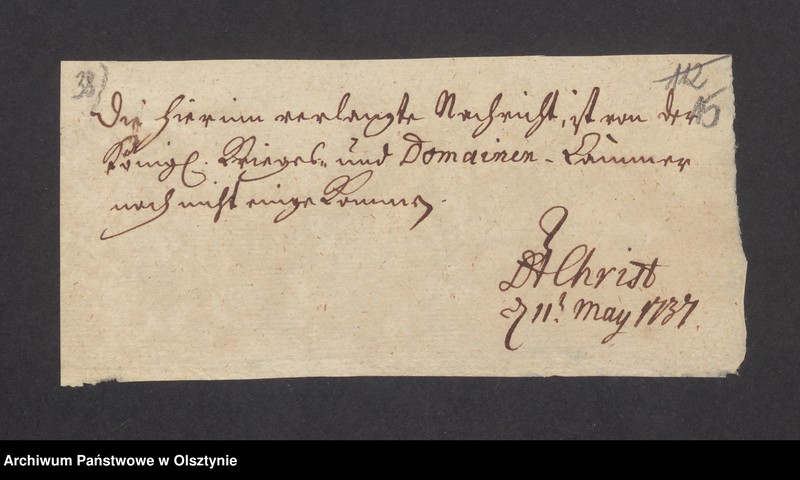 38)
112
15
Die hierinn verlangte Nachricht, ist von der
Königl. Krieges- und Domainen-Cammer
noch nicht eingekommen.
Christ
11t May 1737.
Archiwum Państwowe w Olsztynie